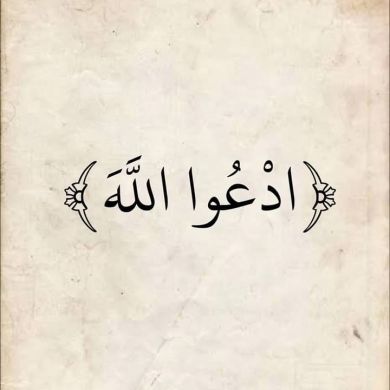 ﴿ادْعُوا اللَّهَ﴾